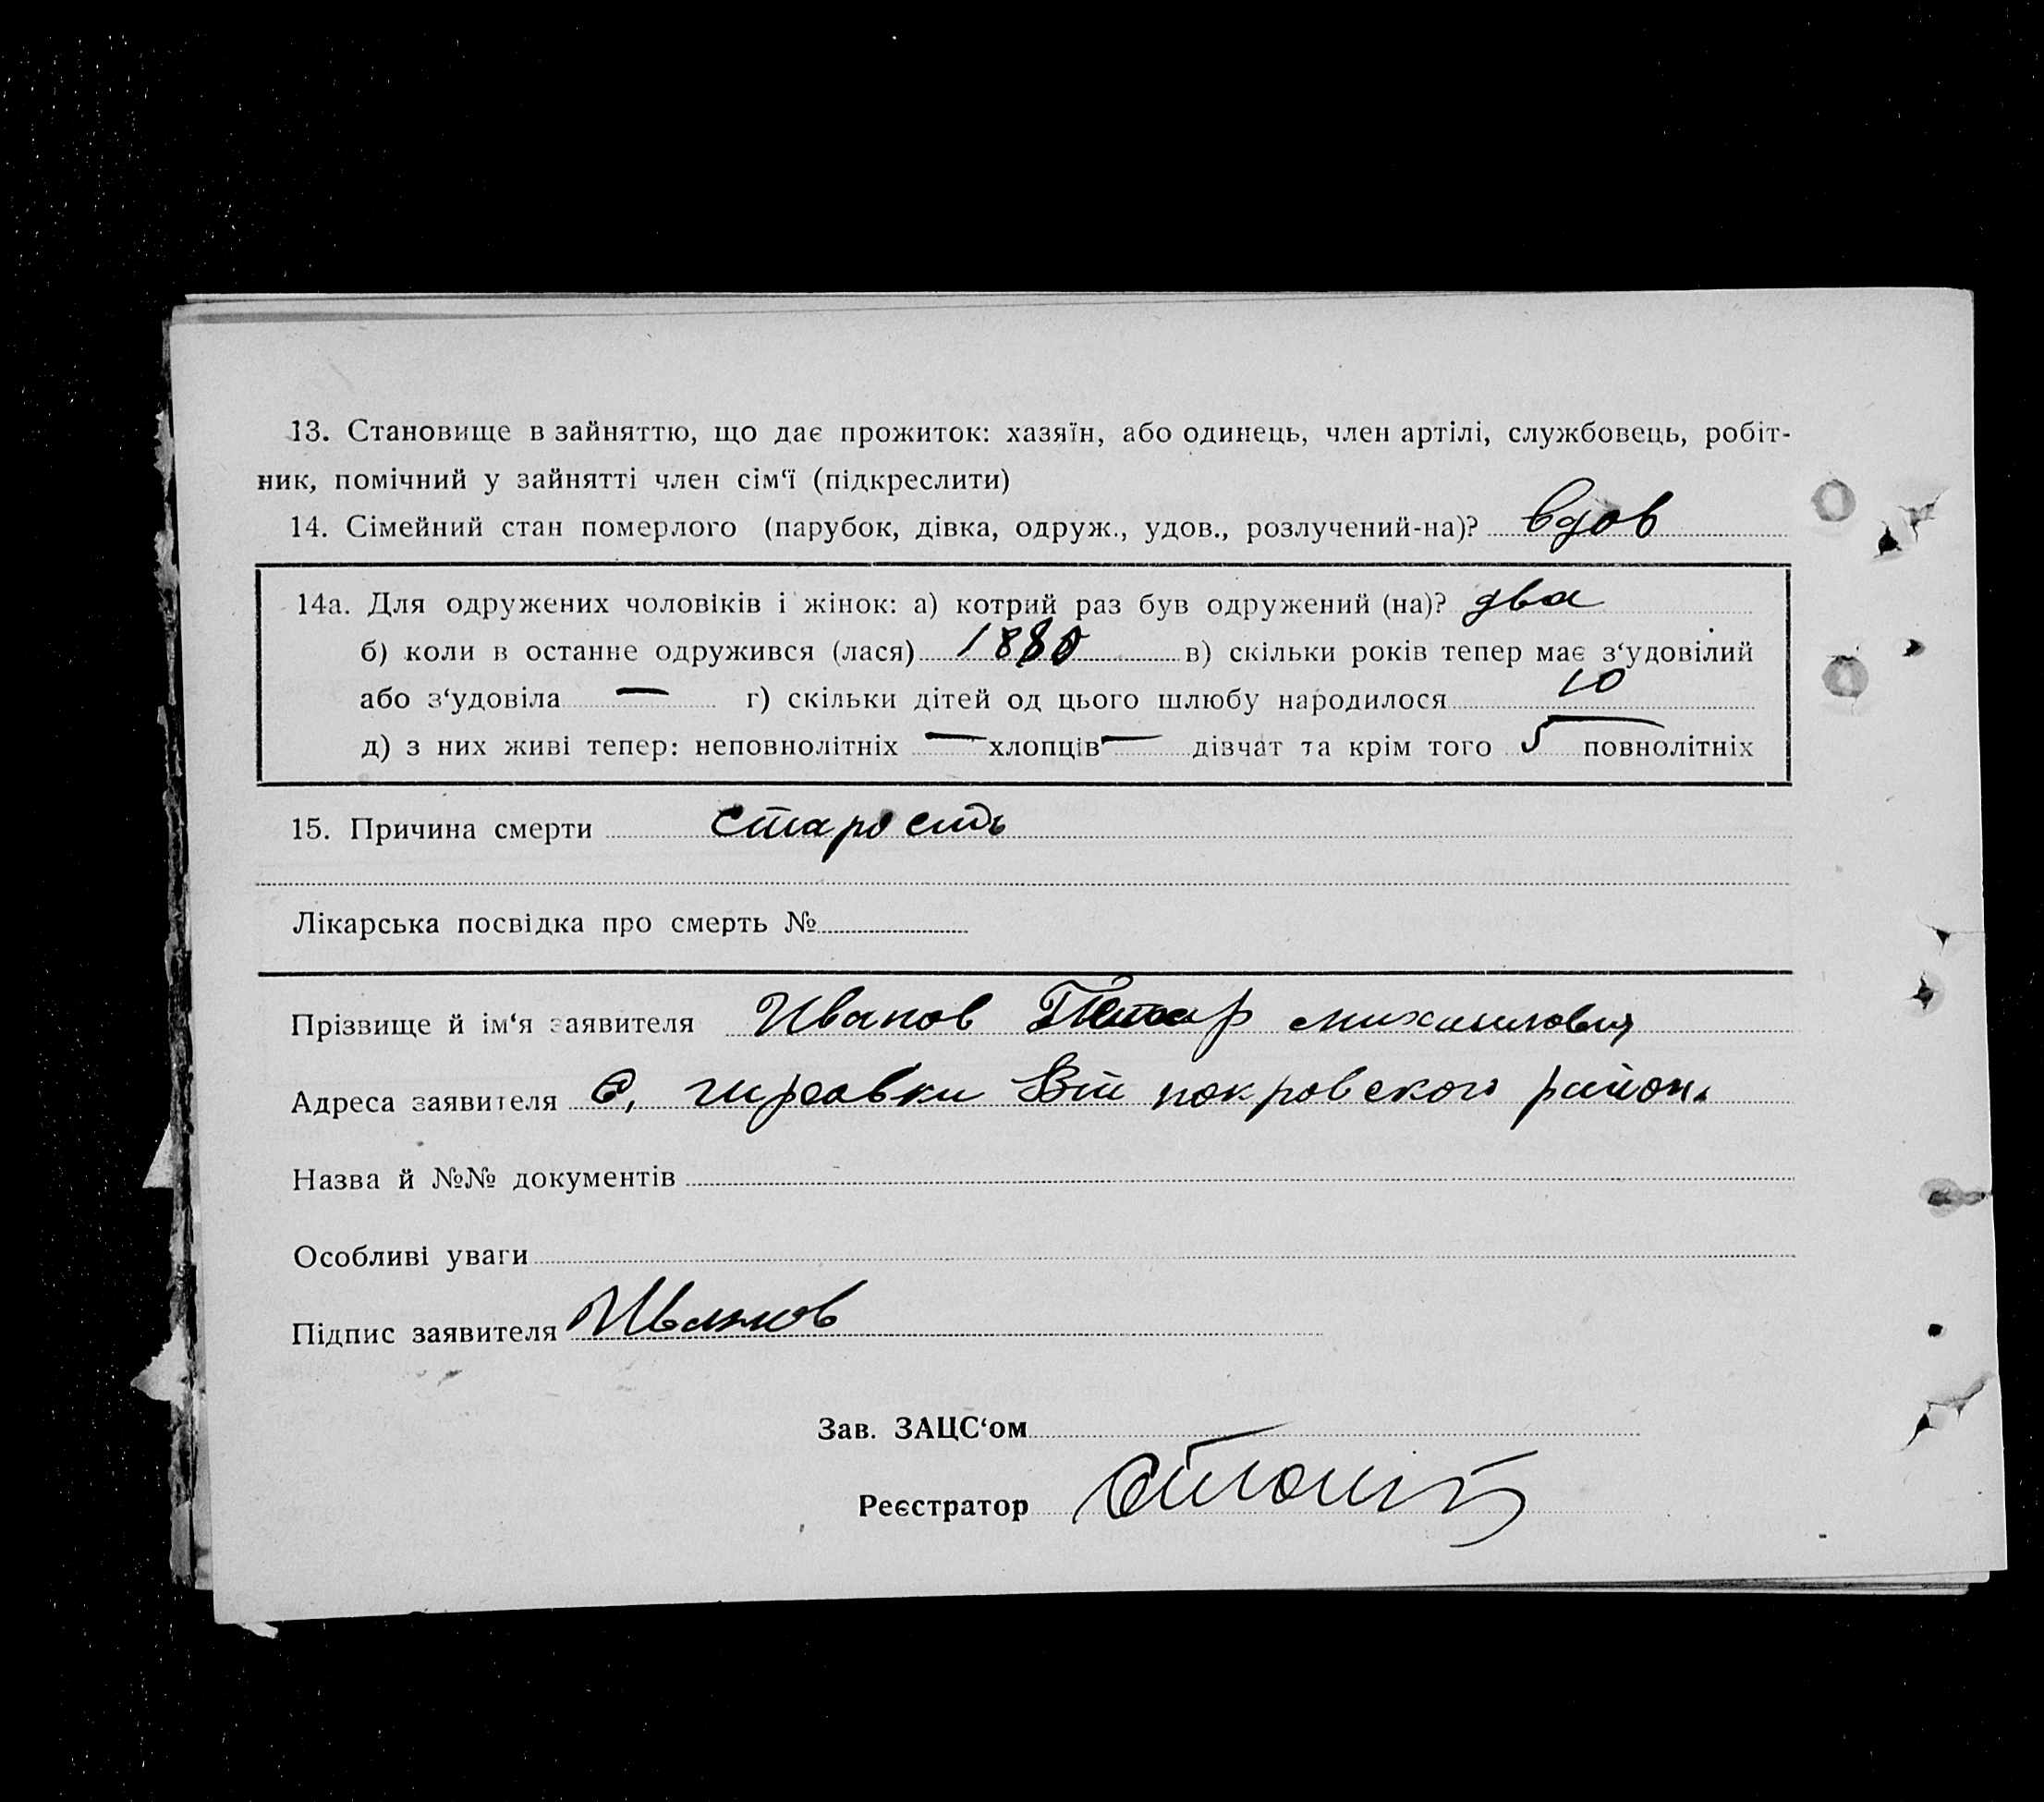 13. Становище в зайняттю, що дає прожиток: хазяїн, або одинець, член артілі, службовець, робіт-
ник, помічний у зайнятті член сім‘ї (підкреслити)
14. Сімейний стан померлого (парубок, дівка, одруж., удов., розлучений-на)? вдов
14а. Для одружених чоловіків і жінок: а) котрий раз був одружений (на)? два
б) коли в останнє одружився (лася) 1880 в) скільки років тепер має з‘удовілий
або з‘удовіла — г) скільки дітей од цього шлюбу народилося 10
д) з них живі тепер: неповнолітніх — хлопців — дівчат та крім того 5 повнолітніх
15. Причина смерти старость
Лікарська посвідка про смерть №
Прізвище й ім‘я заявителя Иванов Петр михайлович
Адреса заявителя с. покровского района
Назва й №№ документів
Особливі уваги
Підпис заявителя Иванов
Зав. ЗАЦС‘ом
Реєстратор